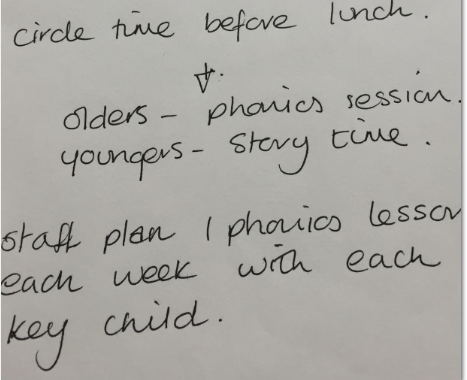 circle time before lunch.
olders - phonics session.
youngers - story time.
staff plan 1 phonics lesson
each week with each
key child.